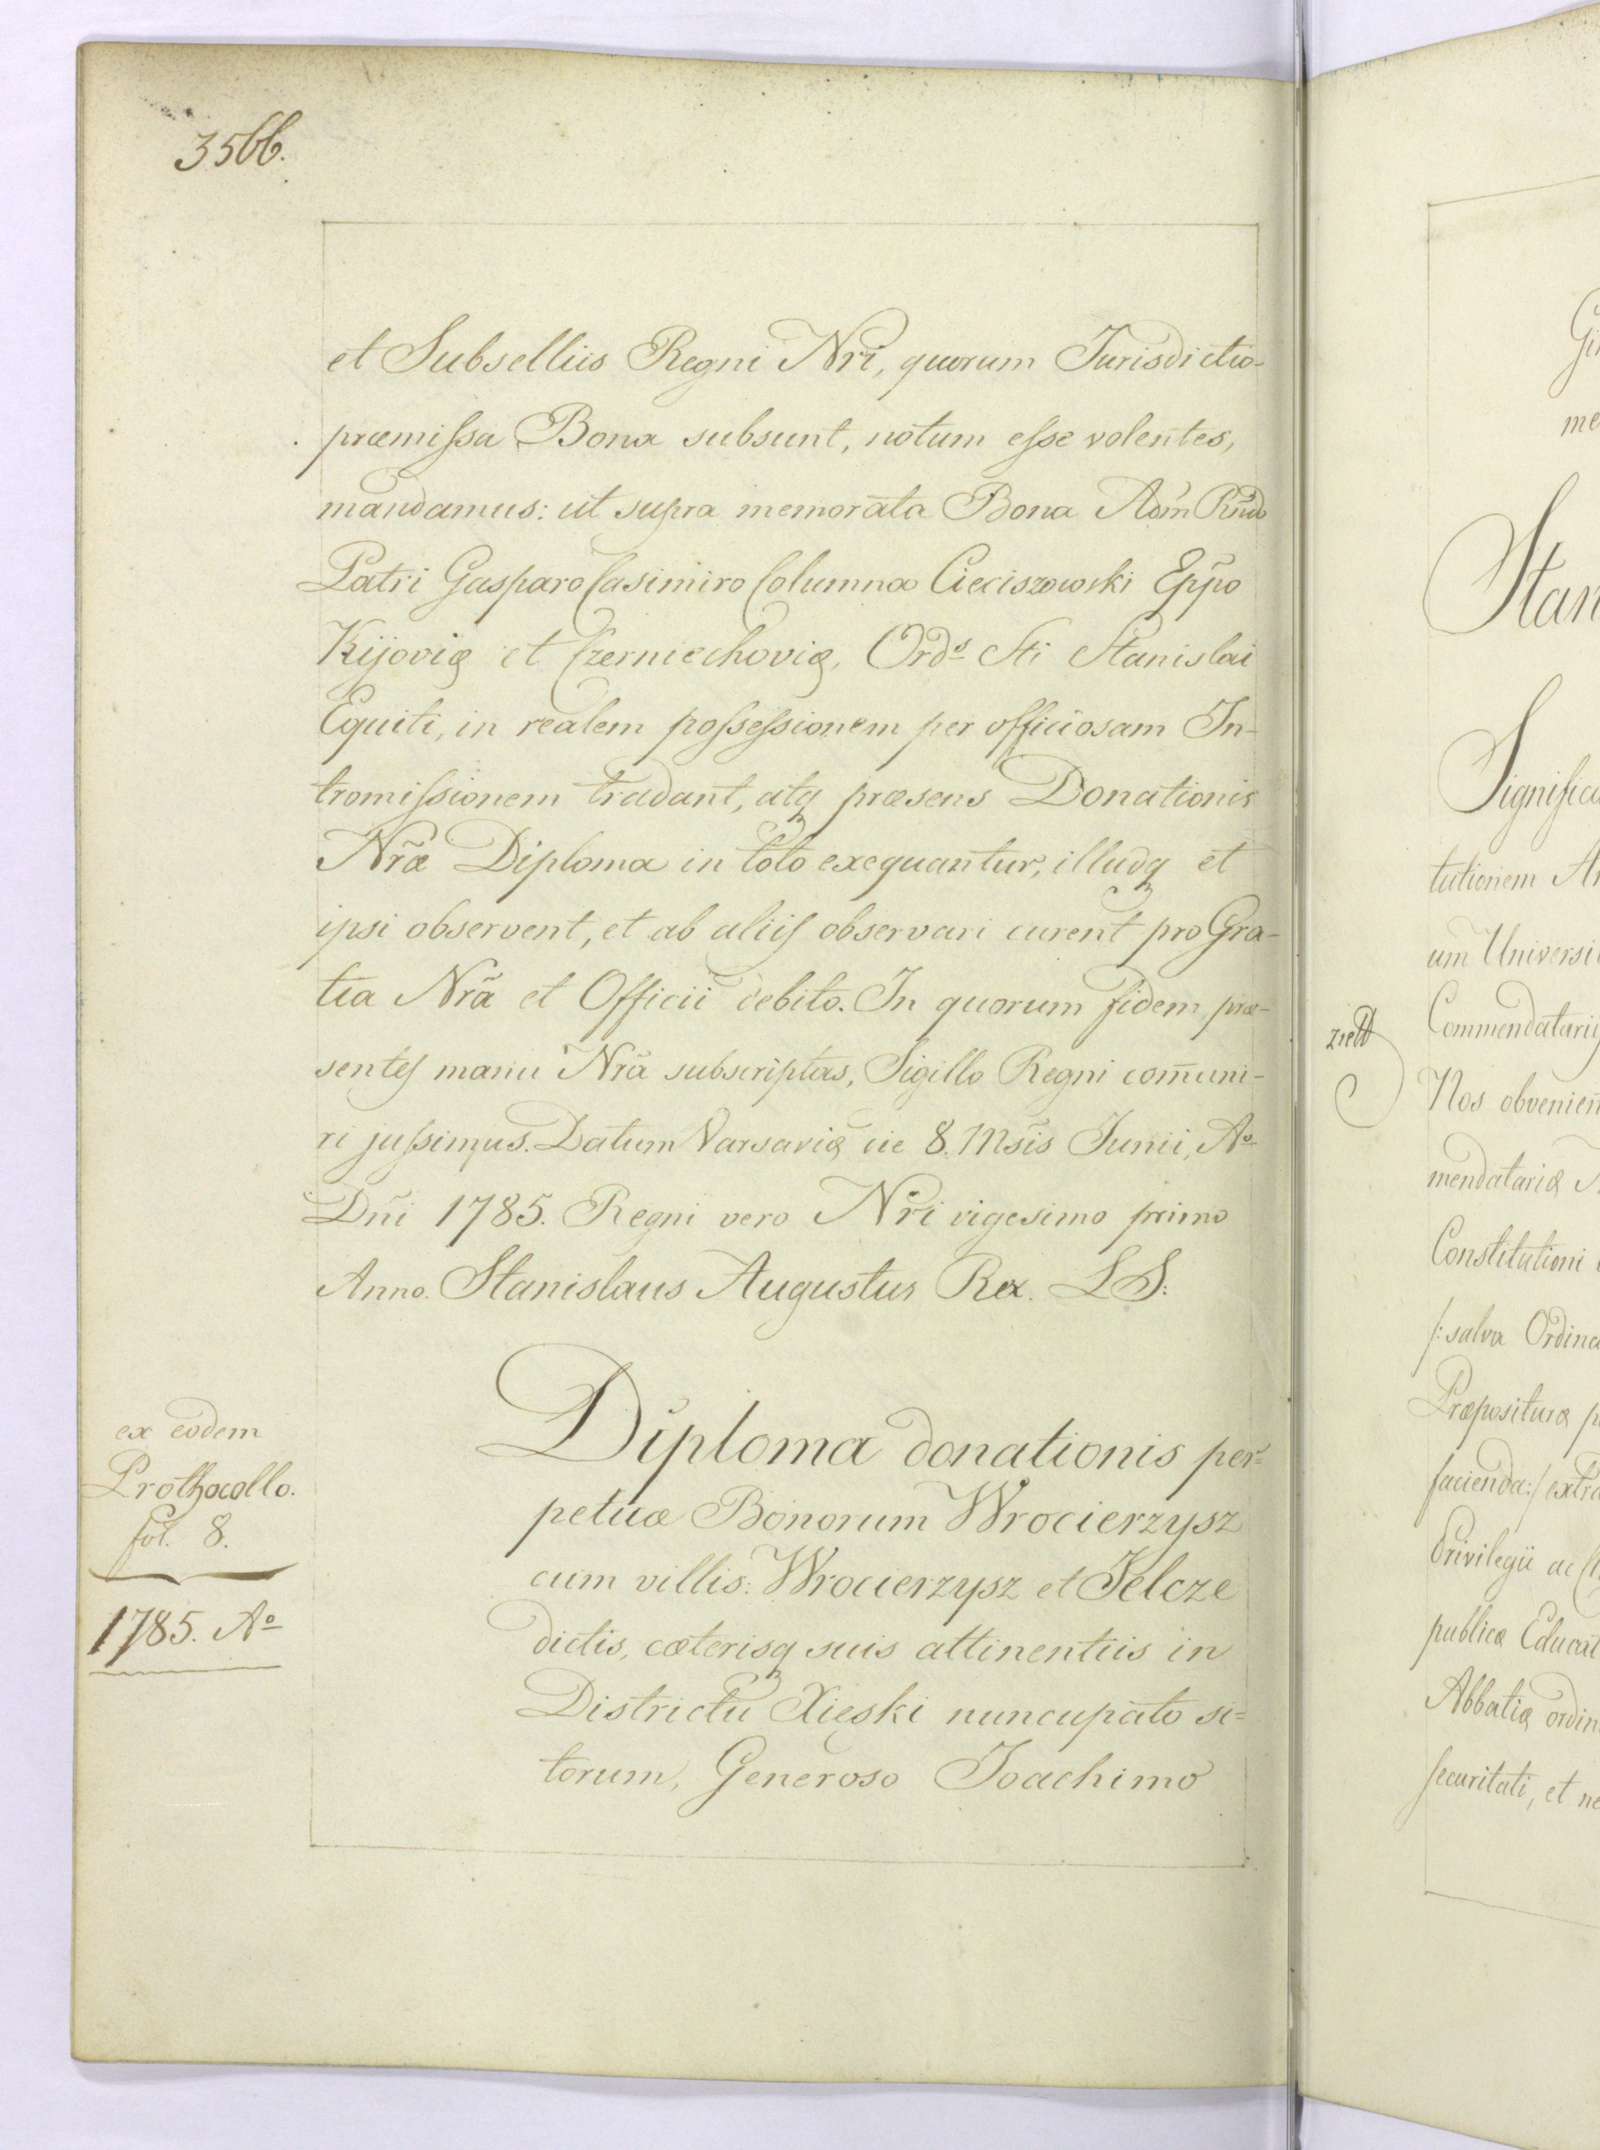 3566.
et Subselliis Regni Nri, quorum Jurisdictio-
præmissa Bona subsunt, notum esse volentes,
mandamus: ut supra memorata Bona Adm Rndo
Patri Gasparo Casimiro Columna Cieciszowski Eppo
Kijoviæ et Czerniechoviæ, Ords Sti Stanislai
Equiti, in realem possessionem per officiosam In-
tromissionem tradant, atq præsens Donationis
Nræ Diploma in toto exequantur, illudq et
ipsi observent, et ab aliis observari curent pro Gra-
tia Nrã et Officii debito. In quorum fidem præ-
sentes manu Nrã subscriptas, Sigillo Regni com̃uni-
ri jussimus. Datum Varsaviæ die 8. Msis Junii, Ao
Dñi 1785. Regni vero Nri vigesimo primo
Anno. Stanislaus Augustus Rex. LS:
ex eodem
Prothocollo.
fol. 8.
1785. Ao
Diploma donationis per-
petuæ Bonorum Wrocierzysz
cum villis: Wrocierzysz et Jelcze
dictis, cæterisq suis attinentiis in
Districtu Xięski nuncupato si=
torum, Generoso Joachimo
me
Stan
Signific
tutionem
um Universi
Commendatarii
Nos obvenien
mendatariæ
Constitutioni
/: salva Ordina
Præposituræ
facienda :/ extra
Privilegii ac
publicæ Educat
Abbatiæ ordin
securitati, et ne